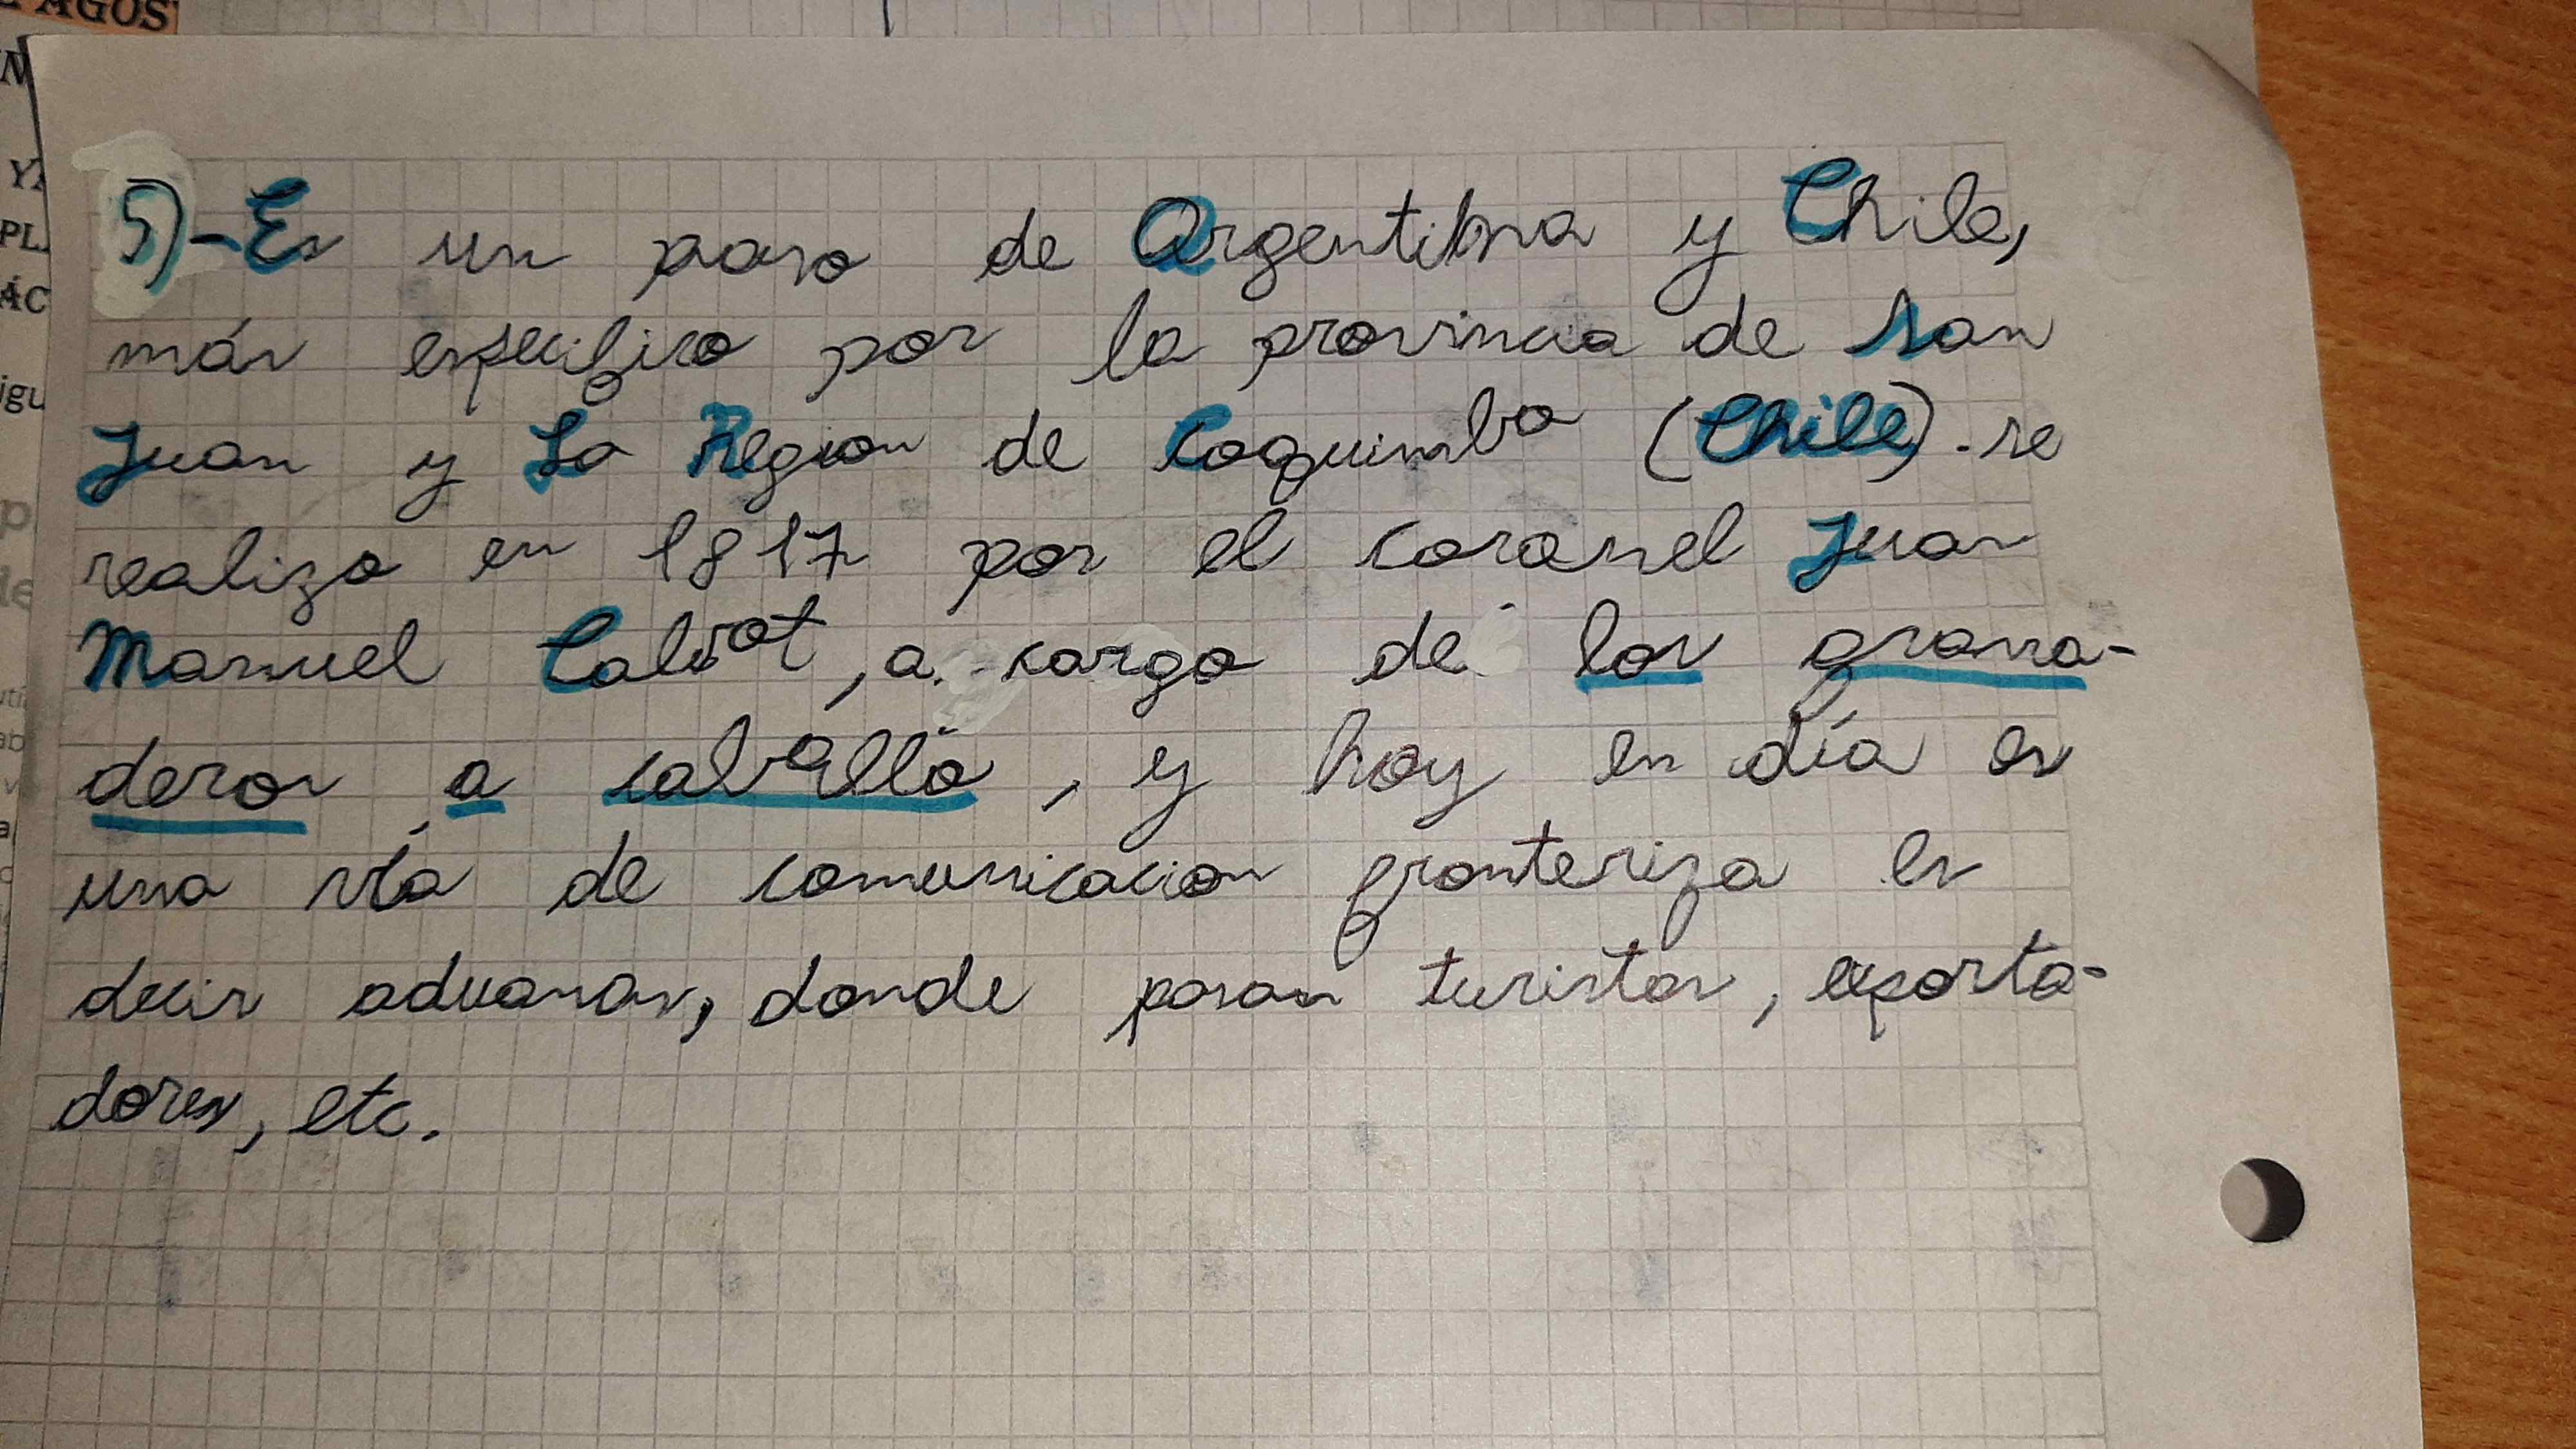 E AGOS
5)-Es un paso de Argentina y Chile,
más especifico por la provincia de san
Juan y La Region de Coquimba (Chile).se
realizo en 1817 por el coronel Juan
Manuel Cabot, a cargo de los grana-
deros a caballo, y hoy en día es
una vía de comunicacion fronteriza es
decir aduanas, donde pasan turistas, exporta-
dores, etc.